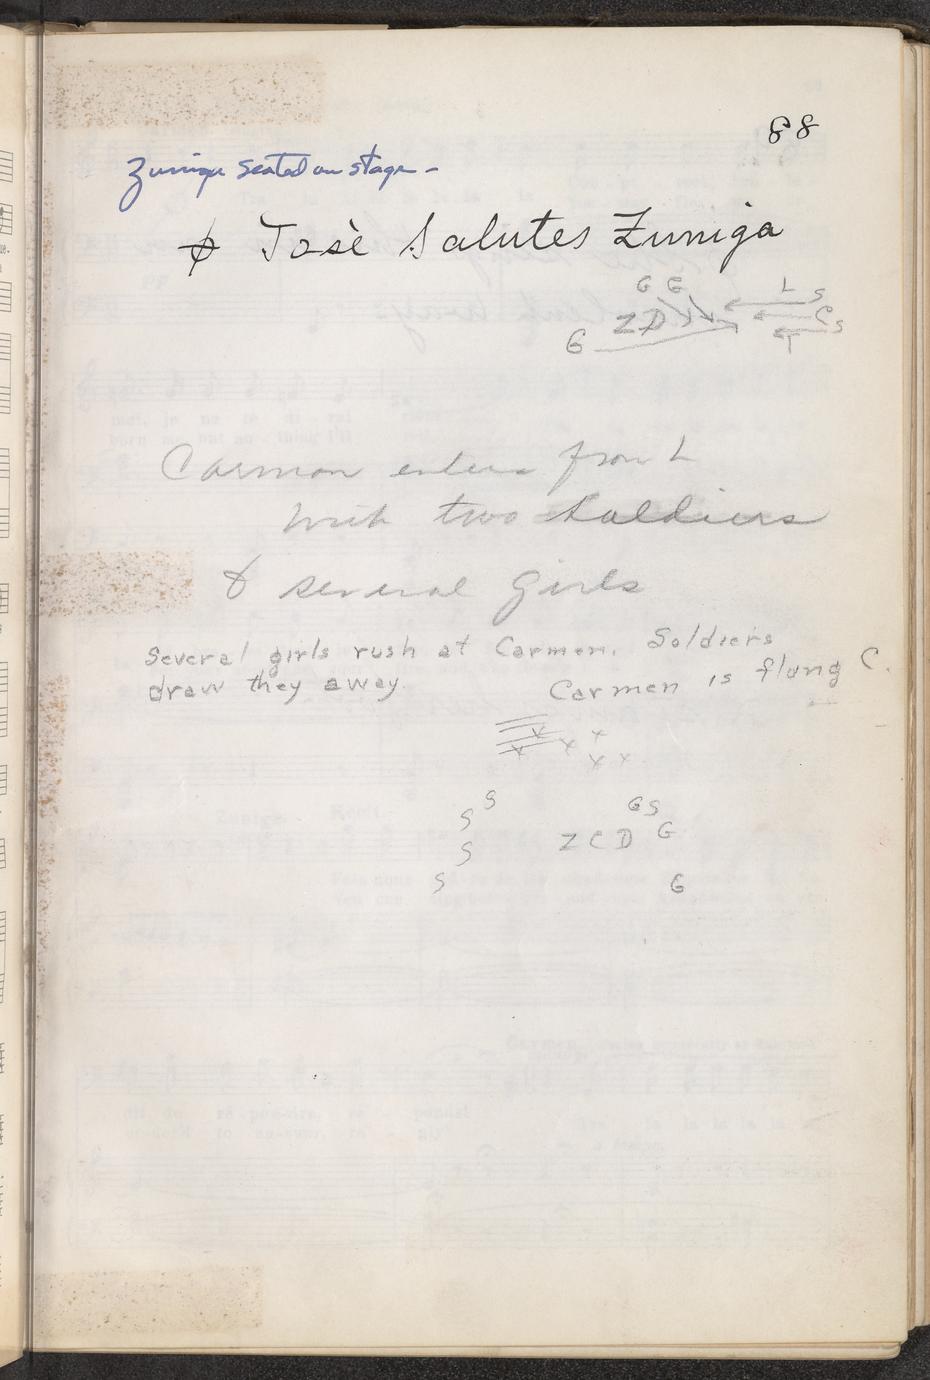 88
Zuniga seated on stage -
ϕ Josè Salutes Zuniga
G G L S
Z D C S
G T
Carmon enters from L
with two Soldiers
& several Girls
Several girls rush at Carmen. Soldiers
draw they away. Carmen is flung C.
x x x x
x x x
S
S G S
Z C D G
S
S G